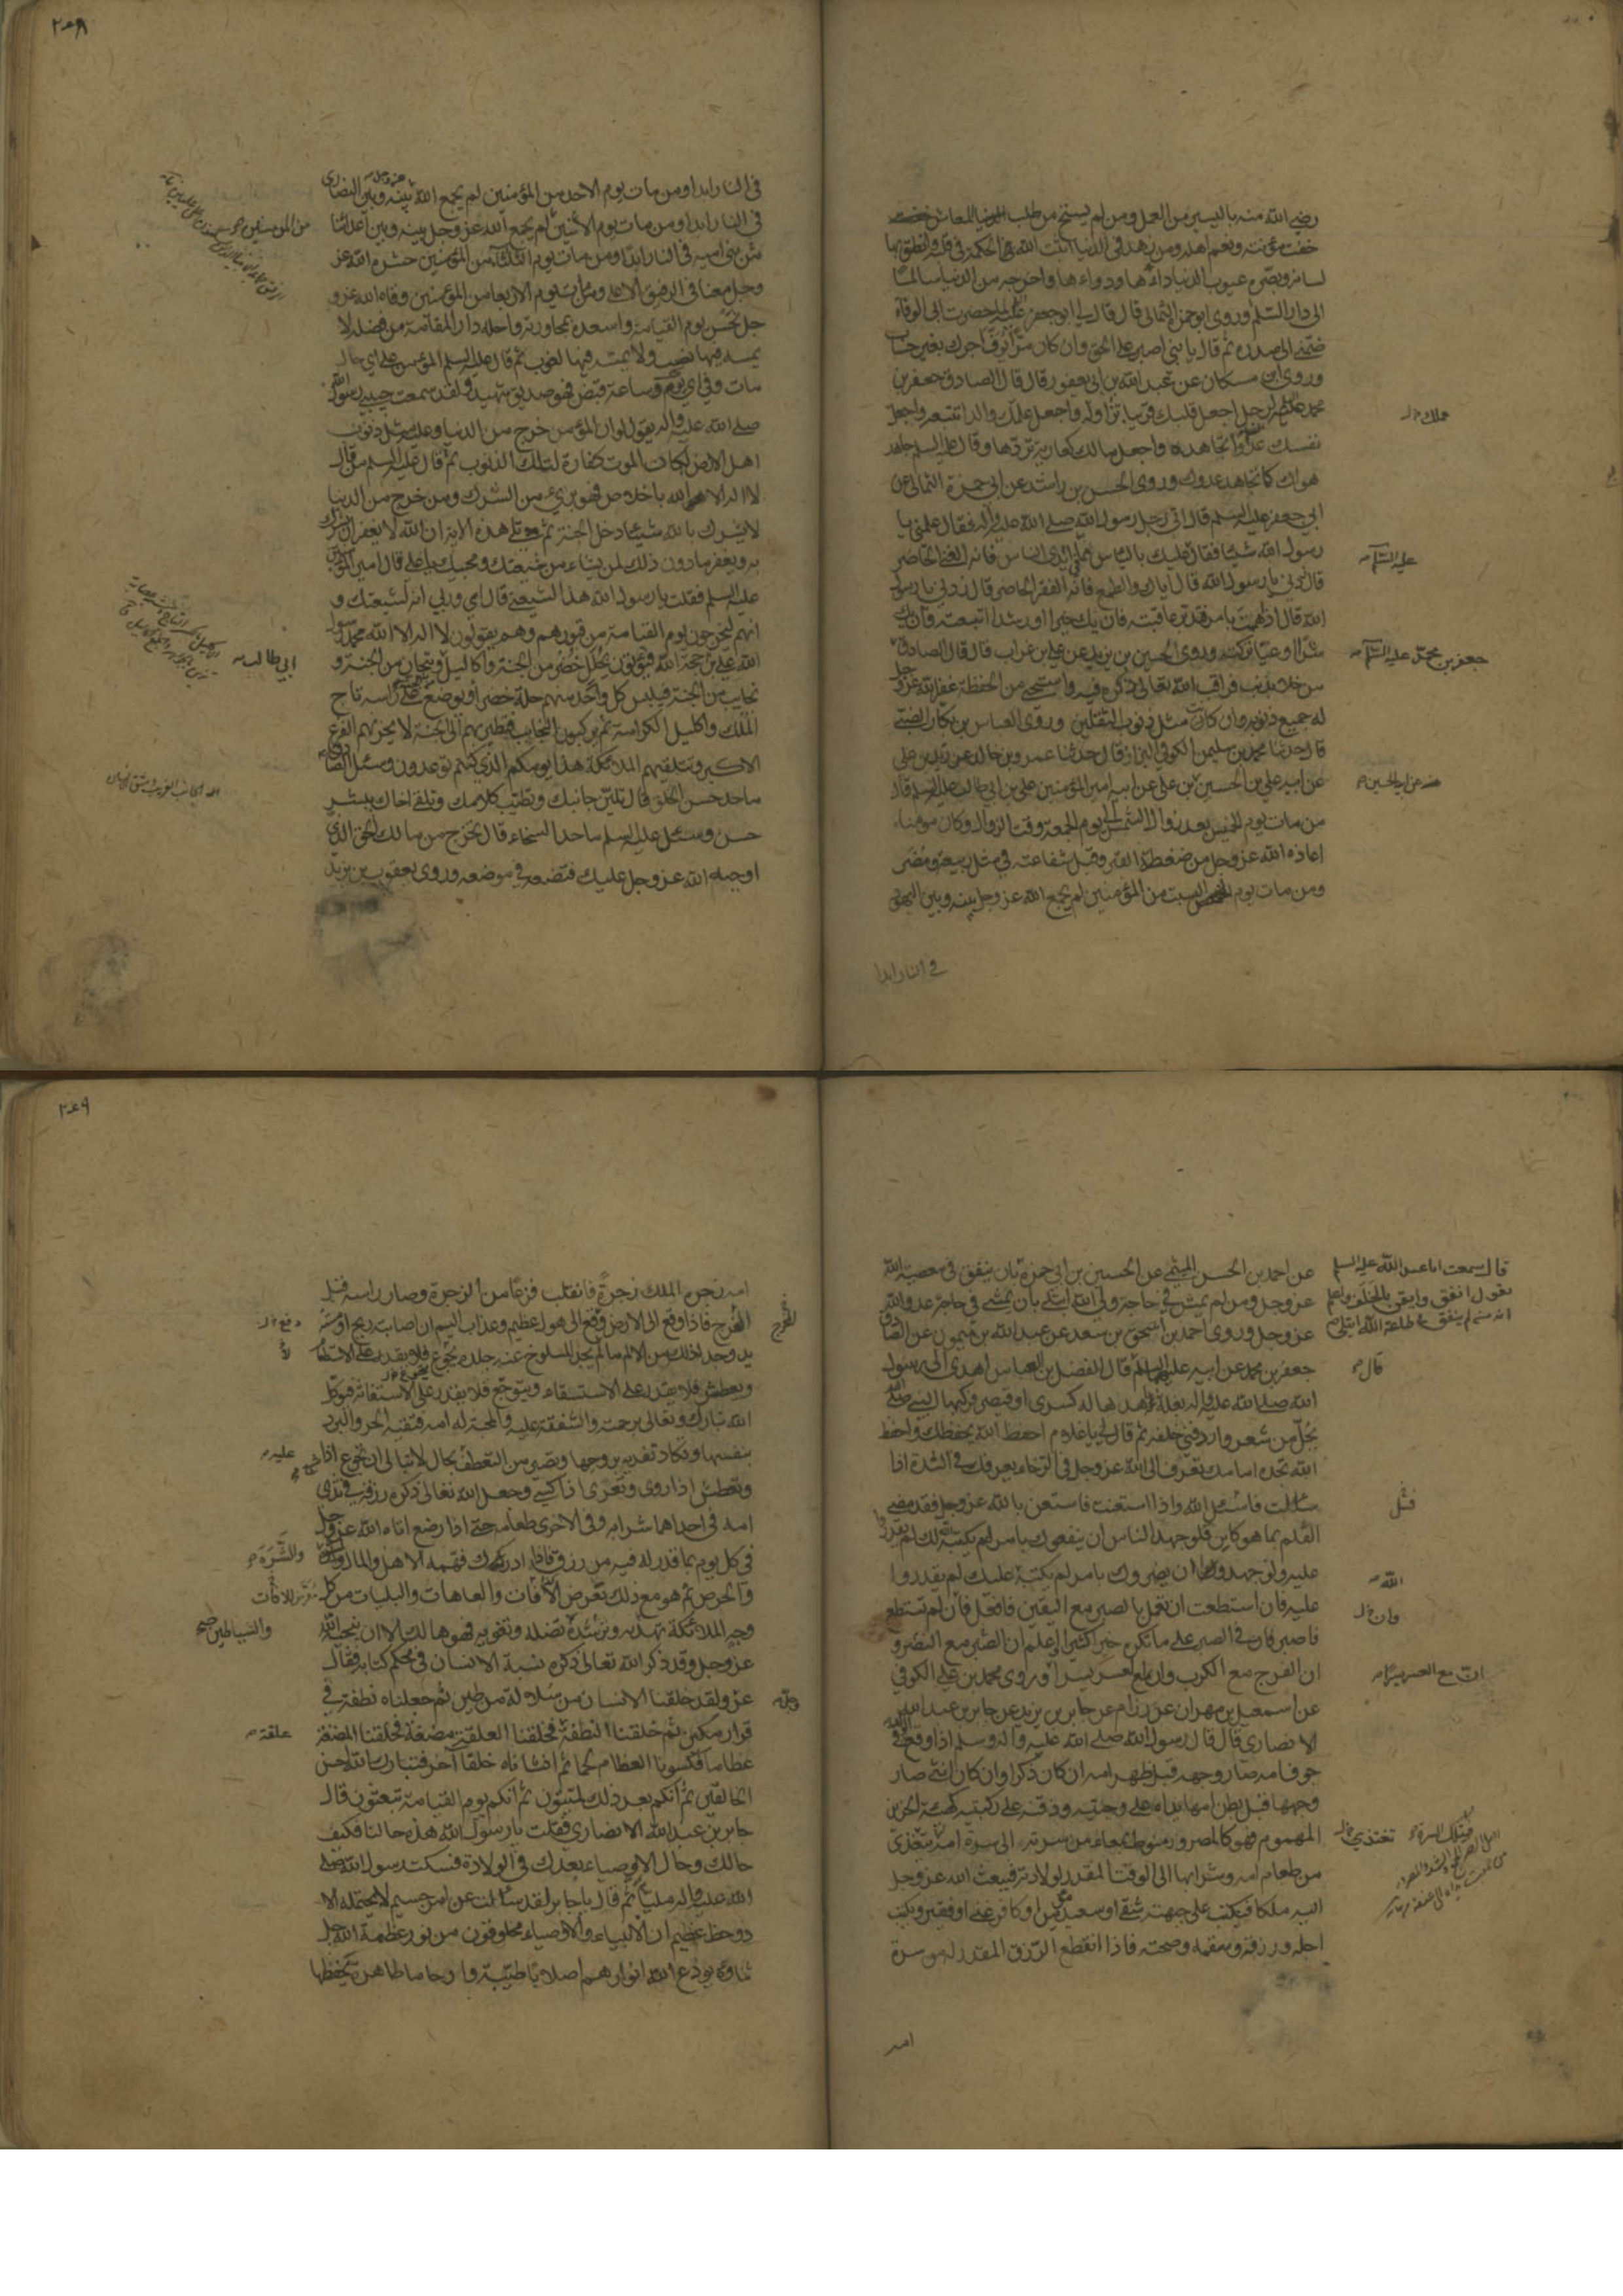 رضي الله منه باليسير من العمل ومن لم يستح من طلب المعاش خفت
خفت مؤنته ونعم اهله ومن زهد في الدنيا اثبت الله الحكمة في قلبه وانطق بها
لسانه وبصره عيوب الدنيا داءها ودواءها واخرجه من الدنيا سالما
الى دار السلم وروى ابو حمزة الثمالي قال قال لي ابو جعفر عليه السلم لما حضرت ابي الوفاة
ضمني الى صدره ثم قال يا بني اصبر على الحق وان كان مرا توف اجرك بغير حساب
وروى ابن مسكان عن عبد الله بن ابي يعفور قال قال الصادق جعفر بن
محمد عليه السلم لرجل اجعل قلبك قرينا تزاوله واجعل علمك والدا تتبعه واجعل
عملك خ ل
نفسك عدوا تجاهده واجعل مالك كعارية تردها وقال عليه السلم جاهد
هواك كما تجاهد عدوك وروى الحسن بن راشد عن ابي حمزة الثمالي عن
ابي جعفر عليه السلم قال اتى رجل رسول الله صلى الله عليه واله فقال علمني يا
رسول الله شيئا فقال عليك بالياس مما في ايدي الناس فانه الغنى الحاضر
عليه السلام
قال زدني يا رسول الله قال اياك والطمع فانه الفقر الحاضر قال زدني يا رسول
الله قال اذا هممت بامر فتدبر عاقبته فان يك خيرا او رشدا اتبعته وان يك
شرا او غيا تركته وروى الحسين بن يزيد عن علي بن غراب قال قال الصادق
جعفر بن محمد عليه السلام
من خلا بذنب فراقب الله تعالى ذكره فيه واستحيى من الحفظة غفر الله عز وجل
له جميع ذنوبه وان كانت مثل ذنوب الثقلين وروى العباس بن بكار الضبي
قال حدثنا محمد بن سليمن الكوفي البزاز قال حدثنا عمرو بن خالد عن زيد بن علي
عن ابيه علي بن الحسين بن علي عن ابيه امير المؤمنين علي بن ابي طالب عليه السلم قال
من مات يوم الخميس بعد زوال الشمس الى يوم الجمعة وقت الزوال وكان مومنا
اعاذه الله عز وجل من ضغطة القبر وقبل شفاعته في مثل ربيعة ومضر
ومن مات يوم السبت من المؤمنين لم يجمع الله عز وجل بينه وبين اليهود
في النار ابدا
٢٤٨
في النار ابدا ومن مات يوم الاحد من المؤمنين لم يجمع الله عز وجل بينه وبين النصارى
في النار ابدا ومن مات يوم الاثنين لم يجمع الله عز وجل بينه وبين اعدائنا
من المؤمنين
من بني اميه في النار ابدا ومن مات يوم الثلثا من المؤمنين حشره الله عز
وجل معنا في الرفيق الاعلى ومن مات يوم الاربعا من المؤمنين وقاه الله عز و
جل نحس يوم القيامة واسعده بمجاورته واحله دار المقامة من فضله لا
يمسه فيها نصب ولا يمسه فيها لغوب ثم قال عليه السلم المؤمن على اي حال
مات وفي اي يوم وساعة قبض فهو صديق شهيد ولقد سمعت حبيبي رسول الله
صلى الله عليه واله يقول لو ان المؤمن خرج من الدنيا وعليه مثل ذنوب
اهل الارض لكان الموت كفارة لتلك الذنوب ثم قال عليه السلم من قال
لا اله الا الله باخلاص فهو بريء من الشرك ومن خرج من الدنيا
لا يشرك بالله شيئا دخل الجنة ثم تلا هذه الاية ان الله لا يغفر ان يشرك
به ويغفر ما دون ذلك لمن يشاء من شيعتك ومحبيك يا علي قال امير المؤمنين
عليه السلم فقلت يا رسول الله هذا لشيعتي قال اي وربي انه لشيعتك و
انهم ليخرجون يوم القيامة من قبورهم وهم يقولون لا اله الا الله محمد رسول
الله علي بن حجة الله فيؤتون بحلل خضر من الجنة واكاليل وتيجان من الجنة و
ابي طالب
نجايب من الجنة فيلبس كل واحد منهم حلة خضرا ويوضع على راسه تاج
الملك واكليل الكرامة ثم يركبون النجايب فتطير بهم الى الجنة لا يحزنهم الفزع
الاكبر وتتلقيهم الملائكة هذا يومكم الذي كنتم توعدون وسئل الصادق
ما حد حسن الخلق قال تلين جانبك وتطيب كلامك وتلقى اخاك ببشر
حسن وسئل عليه السلم ما حد السخاء قال تخرج من مالك الحق الذي
اوجبه الله عز وجل عليك فتضعه في موضعه وروى يعقوب بن يزيد
عن احمد بن الحسن الميثمي عن الحسين بن ابي حمزة بان ينفق في معصية الله
قال سمعت ابا عبد الله عليه السلم
يقول انفق وايقن بالخلف واعلم
انه من لم ينفق في طاعة الله ابتلي
عز وجل ومن لم يمش في حاجة ولي الله ابتلي بان يمشي في حاجة عدو الله
عز وجل وروى احمد بن اسحق بن سعد عن عبد الله بن ميمون عن الصادق
جعفر بن محمد عن ابيه عليهما السلم قال الفضل بن العباس اهدي الى رسول
قال
الله صلى الله عليه واله بغلة اهداها له كسرى او قيصر فركبها النبي صلى الله
بجل من شعر واردفني خلفه ثم قال لي يا غلام احفظ الله يحفظك واحفظ
الله تجده امامك تعرف الى الله عز وجل في الرخاء يعرفك في الشدة اذا
سالت فاسئل الله واذا استعنت فاستعن بالله عز وجل فقد مضى
القلم بما هو كاين فلو جهد الناس ان ينفعوك بامر لم يكتبه الله لك لم يقدروا
عليه ولو جهدوا ان يضروك بامر لم يكتبه عليك لم يقدروا
الله
عليه فان استطعت ان تعمل بالصبر مع اليقين فافعل فان لم تستطع
وان خ ل
فاصبر فان في الصبر على ما تكره خيرا كثيرا واعلم ان الصبر مع النصر و
ان الفرج مع الكرب وان مع العسر يسرا وروى محمد بن علي الكوفي
ان مع العسر يسرا
عن اسمعيل بن مهران عن مرازم عن جابر بن يزيد عن جابر بن عبد الله
الانصاري قال قال رسول الله صلى الله عليه واله وسلم اذا وقع الولد في
جوف امه صار وجهه قبل ظهر امه ان كان ذكرا وان كان انثى صار
وجهها قبل بطن امها يداه على وجنتيه وذقنه على ركبتيه كهيئة الحزين
المهموم فهو كالمصرور منوط بمعاء من سرته الى سرة امه يتغذى
تغتذي خ ل
من طعام امه وشرابها الى الوقت المقدر لولادته فيبعث الله عز وجل
اليه ملكا فيكتب على جبهته شقي او سعيد مؤمن او كافر غني او فقير ويكتب
اجله ورزقه وسقمه وصحته فاذا انقطع الرزق المقدر له من سرة
امه
٢٤٩
امه زجره الملك زجرة فانقلب فزعا من الزجرة وصار راسه قبل
المخرج فاذا وقع الى الارض وقع الى هول عظيم وعذاب اليم ان اصابته ريح او مسته
المخرج
يد وجد لذلك من الالم ما لم يجد المسلوخ عنه جلده يجوع فلا يقدر على الاستطعام
ويعطش فلا يقدر على الاستسقاء ويتوجع فلا يقدر على الاستغاثة فيوكل
الله تبارك وتعالى برحمته والشفقة عليه والمحبة له امه فتقيه الحر والبرد
بنفسها وتكاد تفديه بروحها وتصير من التعطف بحال لا تبالي ان تجوع اذا شبع
عليه
وتعطش اذا روى وتعرى اذا كسي وجعل الله تعالى ذكره رزقه في ثدي
امه في احداهما شرابه وفي الاخرى طعامه حتى اذا رضع اتاه الله عز وجل
في كل يوم بما قدر له فيه من رزق فاذا ادرك فهمه الاهل والمال
والشره
والحرص ثم هو مع ذلك تعرض الافات والعاهات والبليات من كل
وجه الملائكة تهديه وترشده تضله وتغويه فهو هالك الا ان ينجيه الله
والشياطين صح
عز وجل وقد ذكر الله تعالى ذكره نسبة الانسان في محكم كتابه فقال
عز ولقد خلقنا الانسان من سلالة من طين ثم جعلناه نطفة في
وجل
قرار مكين ثم خلقنا النطفة فخلقنا العلقة مضغة فخلقنا المضغة
علقة
عظاما فكسونا العظام لحما ثم انشاناه خلقا آخر فتبارك الله احسن
الخالقين ثم انكم بعد ذلك لميتون ثم انكم يوم القيامة تبعثون قال
جابر بن عبد الله الانصاري فقلت يا رسول الله هذه حالنا فكيف
حالك وحال الاوصياء بعدك في الولادة فسكت رسول الله صلى
الله عليه واله مليا ثم قال يا جابر لقد سالت عن امر جسيم لا يحتمله الا
ذو حظ عظيم ان الانبياء والاوصياء مخلوقون من نور عظمة الله جل
ثناؤه يودع الله انوارهم اصلابا طيبة وارحاما طاهرة يحفظها